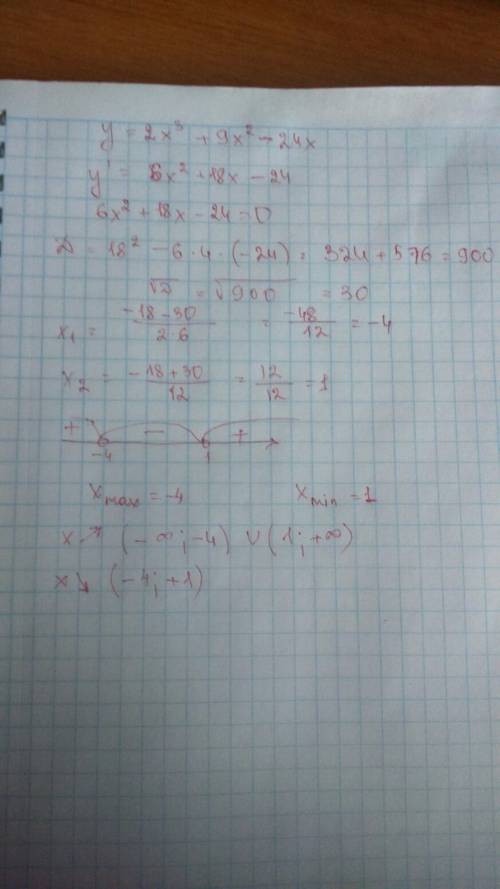 y = 2x³ + 9x² - 24x
y' = 6x² + 18x - 24
6x² + 18x - 24 = 0
D = 18² - 6 · 4 · (-24) = 324 + 576 = 900
√D = √900 = 30
x₁ = (-18-30)/(2·6) = -48/12 = -4
x₂ = (-18+30)/12 = 12/12 = 1
+ - +
-4 1
x max = -4 x min = 1
x ↗ (-∞; -4) ∪ (1; +∞)
x ↘ (-4; +1)